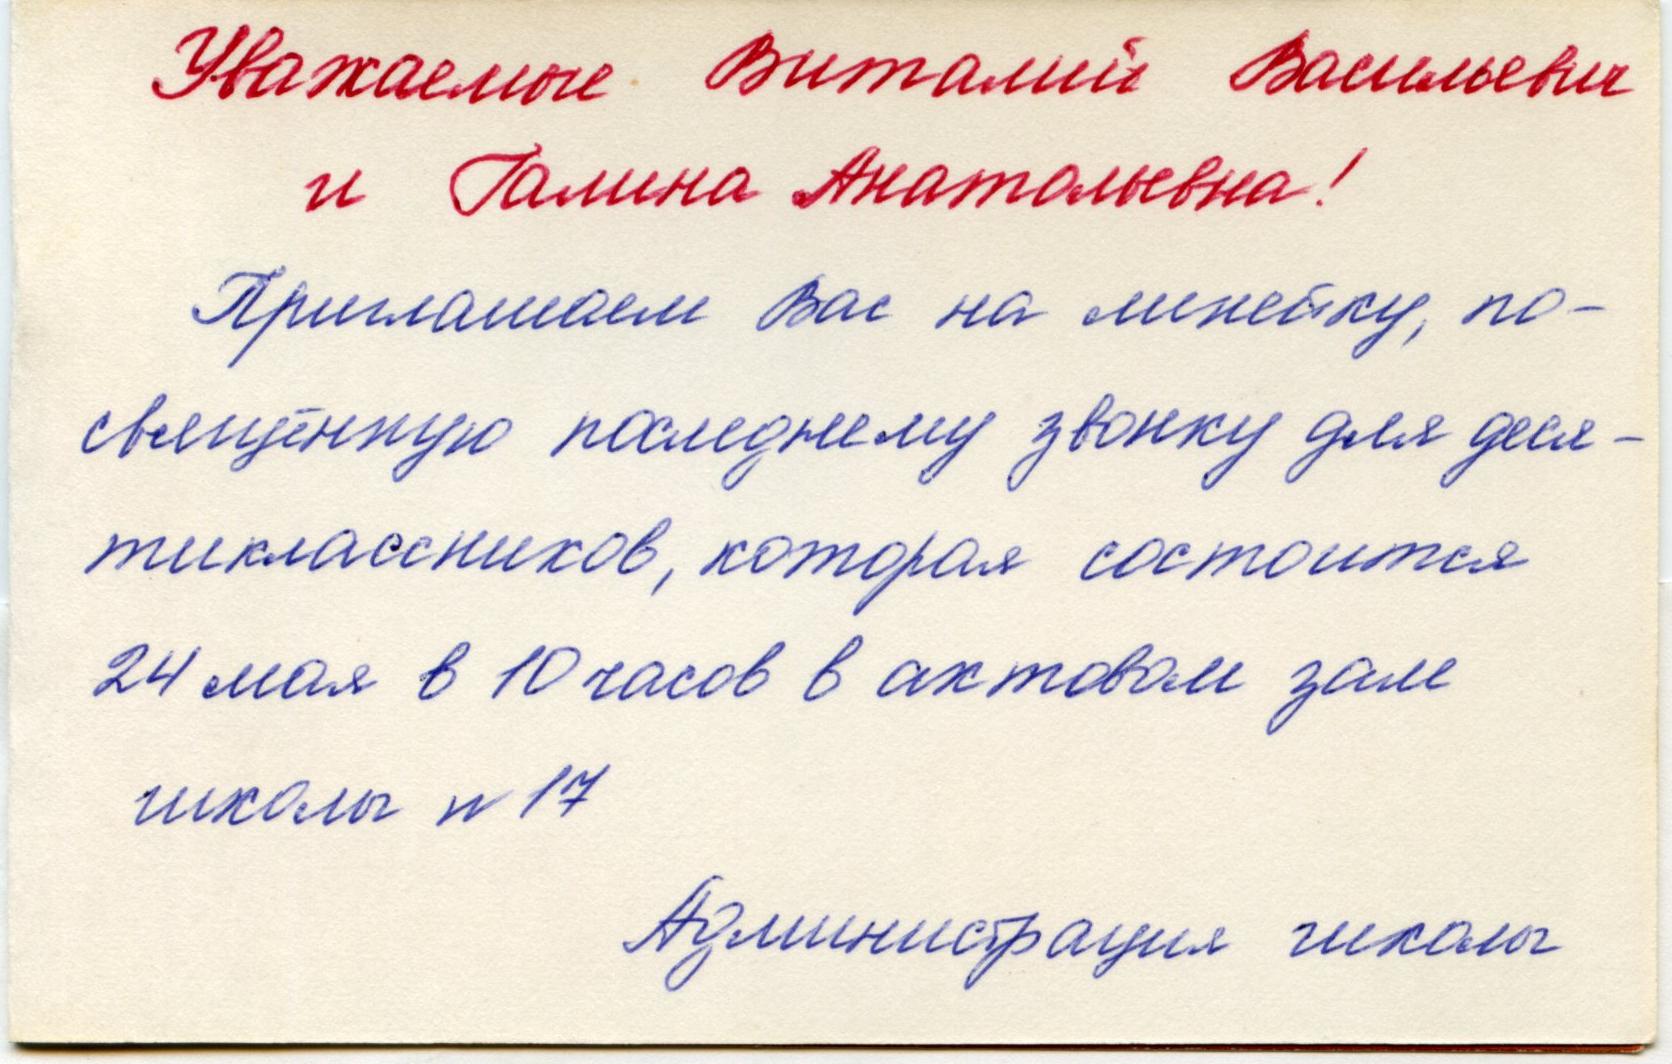 Уважаемые Виталий Васильевич
и Галина Анатольевна!
Приглашаем Вас на линейку, по-
свящённую последнему звонку для деся-
тиклассников, которая состоится
24 мая в 10 часов в актовом зале
школы № 17
Администрация школы